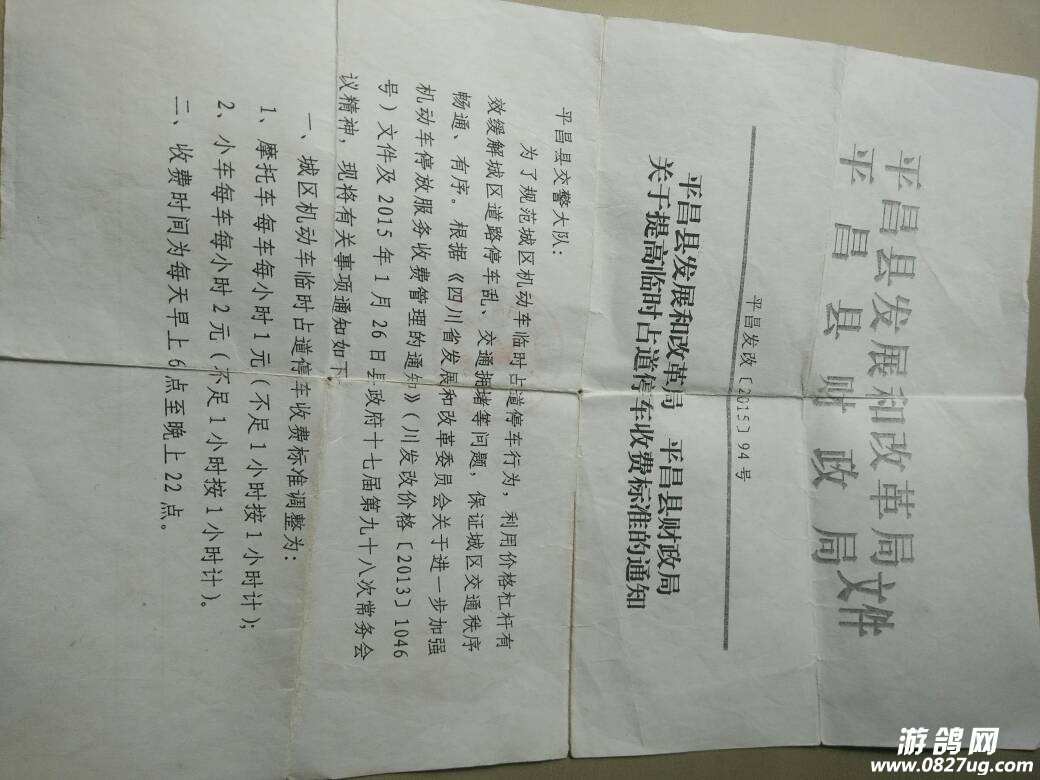 平昌县发展和改革局
平昌县财政局
文件
平昌发改〔2015〕94号
平昌县发展和改革局 平昌县财政局
关于提高临时占道停车收费标准的通知
平昌县交警大队:
为了规范城区机动车临时占道停车行为，利用价格杠杆有
效缓解城区道路停车乱、交通拥堵等问题，保证城区交通秩序
畅通、有序。根据《四川省发展和改革委员会关于进一步加强
机动车停放服务收费管理的通知》(川发改价格〔2013〕1046
号）文件及 2015 年 1 月 26 日县政府十七届第九十八次常务会
议精神，现将有关事项通知如下
一、城区机动车临时占道停车收费标准调整为:
1、摩托车每车每小时1元（不足1小时按1小时计）;
2、小车每车每小时2元（不足1小时按1小时计）。
二、收费时间为每天早上6点至晚上22点。
游鸽网
www.0827ug.com